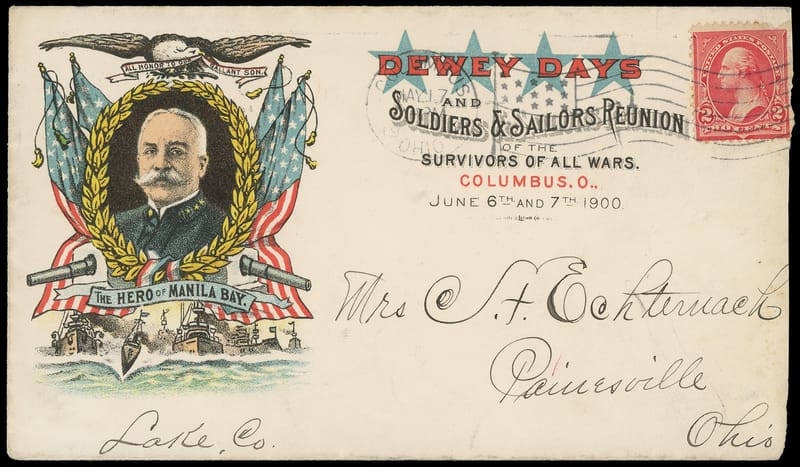 ALL HONOR TO OUR GALLANT SON.
THE HERO OF MANILA BAY.
DEWEY DAYS
AND
SOLDIERS & SAILORS REUNION
OF THE
SURVIVORS OF ALL WARS.
COLUMBUS, O.,
JUNE 6TH. AND 7TH. 1900.
MAY 17
OHIO
UNITED STATES POSTAGE
2 2
TWO CENTS
Mrs S. F. Echternach
Painesville
Ohio
Lake, Co.